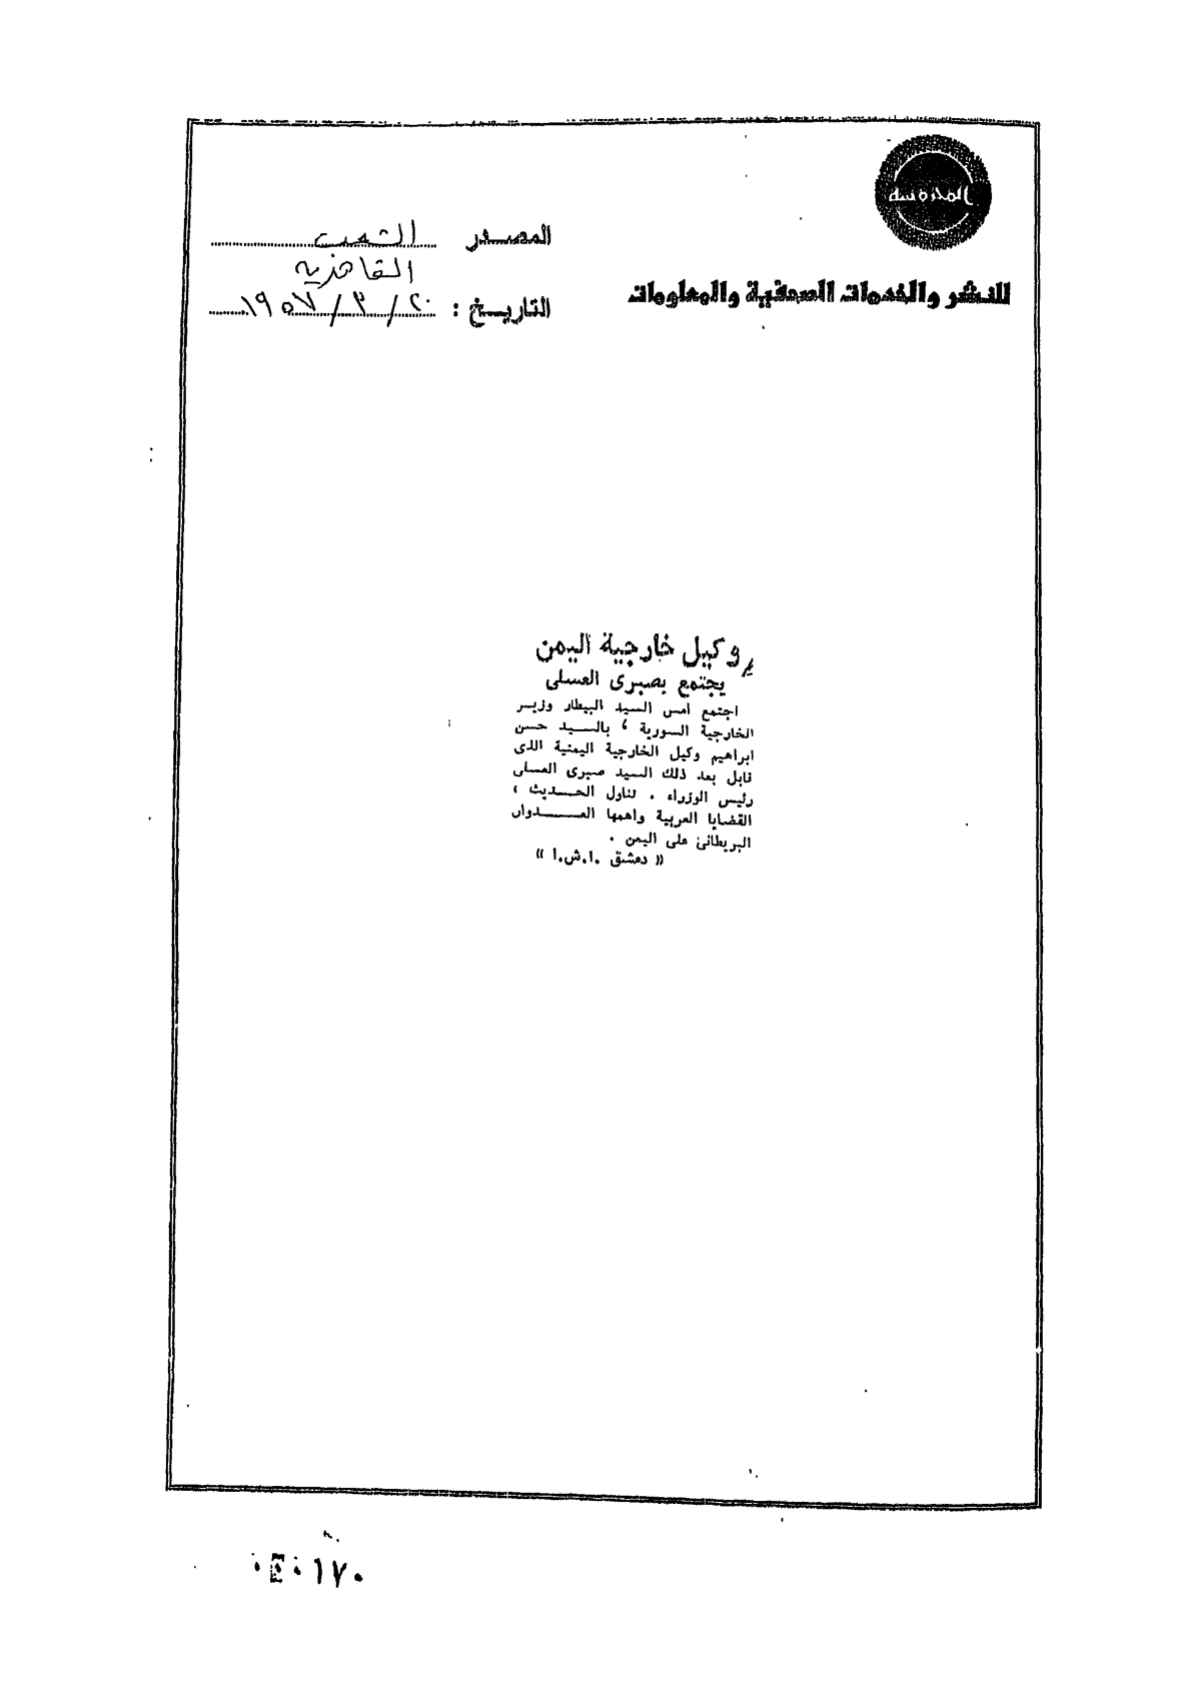 المحروسة
للنشر والخدمات الصحفية والمعلومات
المصدر الشعب
القاهرية
التاريخ : ٢٠/٣/١٩٥٧
وكيل خارجية اليمن
يجتمع بصبرى العسلى
اجتمع امس السيد البيطار وزير
الخارجية السورية ، بالسيد حسن
ابراهيم وكيل الخارجية اليمنية الذى
قابل بعد ذلك السيد صبرى العسلى
رئيس الوزراء . تناول الحديث ،
القضايا العربية واهمها العدوان
البريطانى على اليمن .
« دمشق .ا.ش.ا »
٠١٧٠